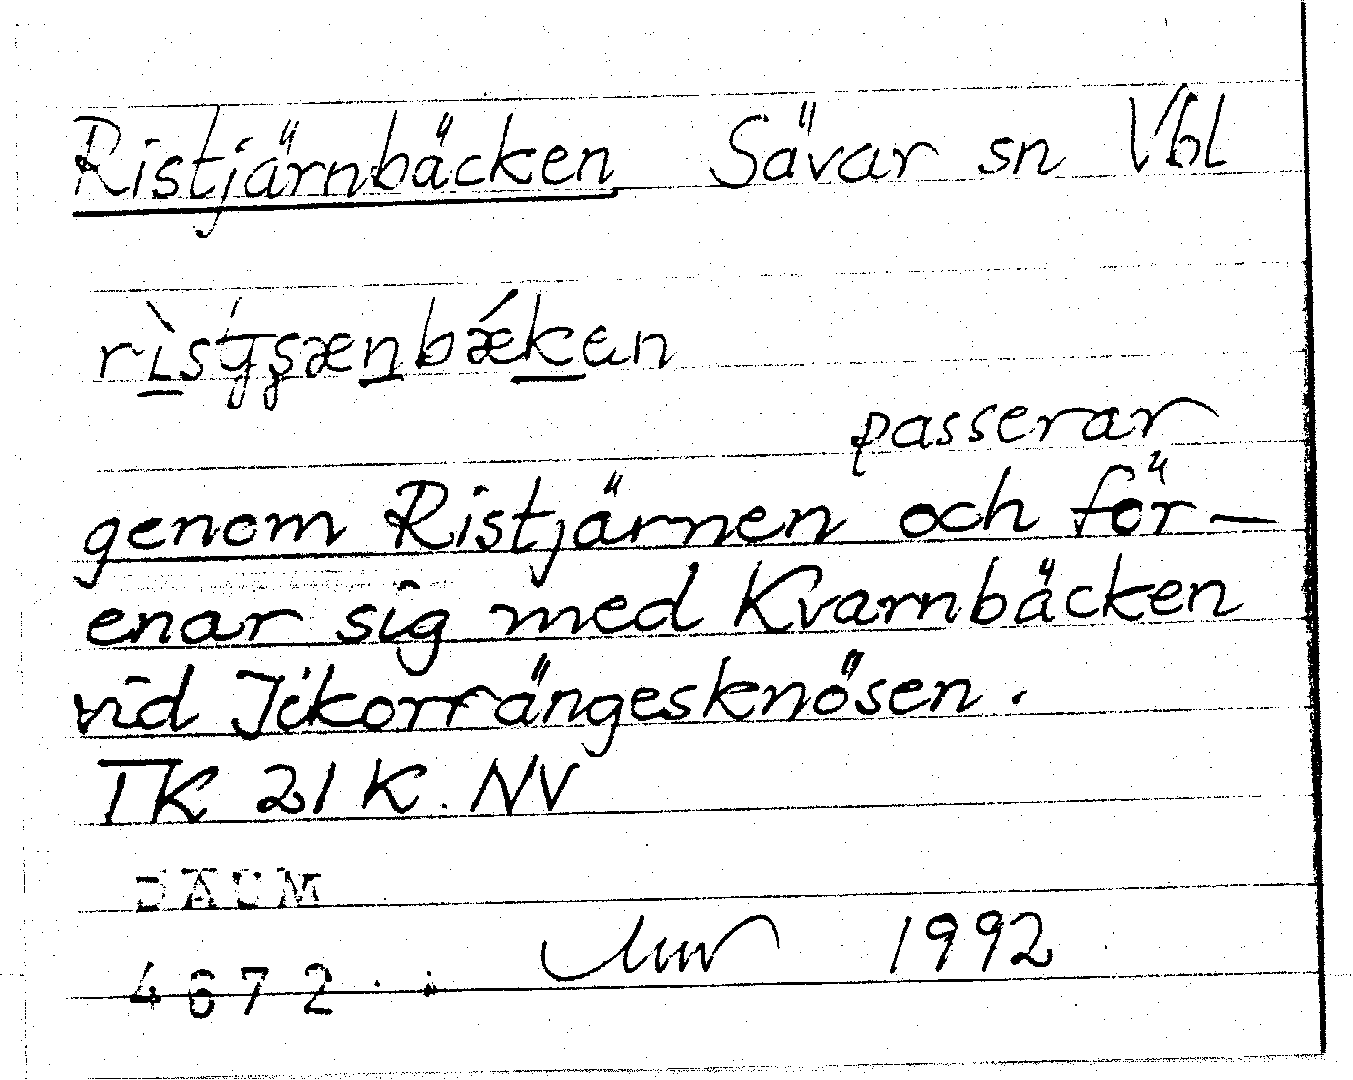 Ristjärnbäcken Sävar sn Vbl
passerar
genom Ristjärnen och för-
enar sig med Kvarnbäcken
vid Ickorrängesknösen.
TK 21 K. NV
DAUM
4672
1992